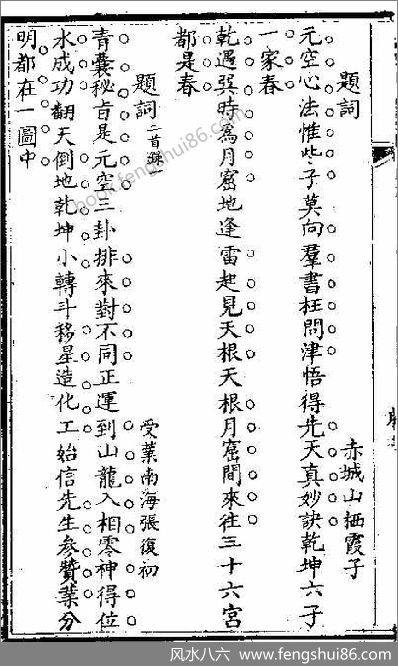 題詞 赤城山栖霞子
元空心法惟些子莫向羣書枉問津悟得先天真妙訣乾坤六子
一家春
乾遇巽時爲月窟地逢雷起見天根天根月窟間來往三十六宮
都是春
題詞 二首錄一 受業南海張復初
青囊秘旨是元空三卦排來對不同正運到山龍入相零神得位
水成功翻天倒地乾坤小轉斗移星造化工始信先生參贊業分
明都在一圖中
book.fengshui86.com
风水八六 www.fengshui86.com